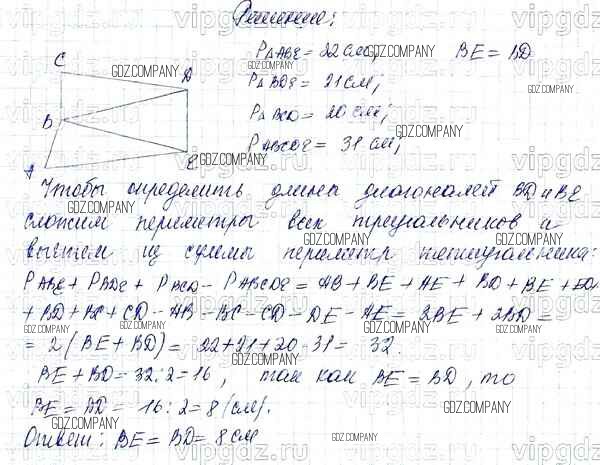 Решение:
P△ABE = 22 см, BE = BD
P△BDE = 21 см;
P△BCD = 20 см;
PABCDE = 31 см;
C
D
B
A
E
Чтобы определить длина диагоналей BD и BE
сложим периметры всех треугольников и
вычтем из суммы периметр пятиугольника:
PABE + PBDE + PBCD - PABCDE = AB + BE + AE + BD + BE + ED
+ BD + BC + CD - AB - BC - CD - DE - AE = 2BE + 2BD =
= 2(BE + BD) = 22 + 21 + 20 - 31 = 32.
BE + BD = 32 : 2 = 16, так как BE = BD, то
BE = BD = 16 : 2 = 8 (см).
Ответ: BE = BD = 8 см
GDZ.COMPANY
vipgdz.ru